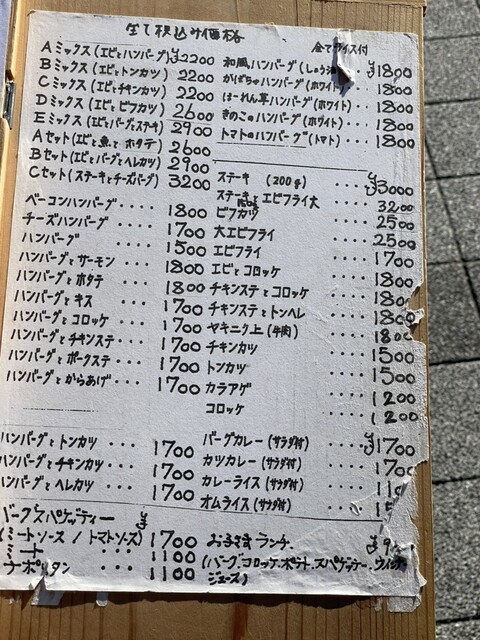 全て税込み価格
全てライス付
Aミックス(エビとハンバーグ) ¥2200
Bミックス(エビとトンカツ) 2200
Cミックス(エビとチキンカツ) 2200
Dミックス(エビとビフカツ) 2600
Eミックス(エビとバーグとステーキ) 2900
Aセット(エビと魚とホタテ) 2600
Bセット(エビとバーグとヘレカツ) 2900
Cセット(ステーキとチーズバーグ) 3200
ベーコンハンバーグ ・・・ 1800
チーズハンバーグ ・・・ 1700
ハンバーグ ・・・ 1500
ハンバーグとサーモン ・・・ 1800
ハンバーグとホタテ ・・・ 1800
ハンバーグとキス ・・・ 1700
ハンバーグとコロッケ ・・・ 1700
ハンバーグとチキンステ ・・・ 1700
ハンバーグとポークステ ・・・ 1700
ハンバーグとからあげ ・・・ 1700
ハンバーグとトンカツ ・・・ 1700
ハンバーグとチキンカツ ・・・ 1700
ハンバーグとヘレカツ ・・・ 1700
バークスパゲッティー ¥
(ミートソース / トマトソース) 1700
ミート ・・・・ 1100
ナポリタン 1100
和風ハンバーグ(しょうゆ) ¥1800
かぼちゃハンバーグ(ホワイト) 1800
ほーれん草ハンバーグ(ホワイト) 1800
きのこのハンバーグ(ホワイト) ・・ 1800
トマトのハンバーグ(トマト) ・・・ 1800
ステーキ (200g) ・・・ ¥3000
ステーキとエビフライ大 ・・・ 3200
ビフカツ ・・・・ 2500
大エビフライ ・・・・ 2500
エビフライ ・・・・ 1700
エビとコロッケ ・・・・ 1800
チキンステとコロッケ ・・・・ 1800
チキンステとトンヘレ ・・・・ 1800
ヤキニク上(牛肉) ・・・・ 1800
チキンカツ ・・・・ 1500
トンカツ ・・・・ 1500
カラアゲ ・・・・ 1200
コロッケ ・・・・ 1200
バーグカレー(サラダ付) ・・・・ ¥1700
カツカレー(サラダ付) ・・・・ 170
カレーライス(サラダ付) ・・・・ 11
オムライス(サラダ付) ・・・・ 1
お子さまランチ・ ・・・ ¥9
(バーグ、コロッケ、ポテト、スパゲッティー、ウィンナー
ジュース)